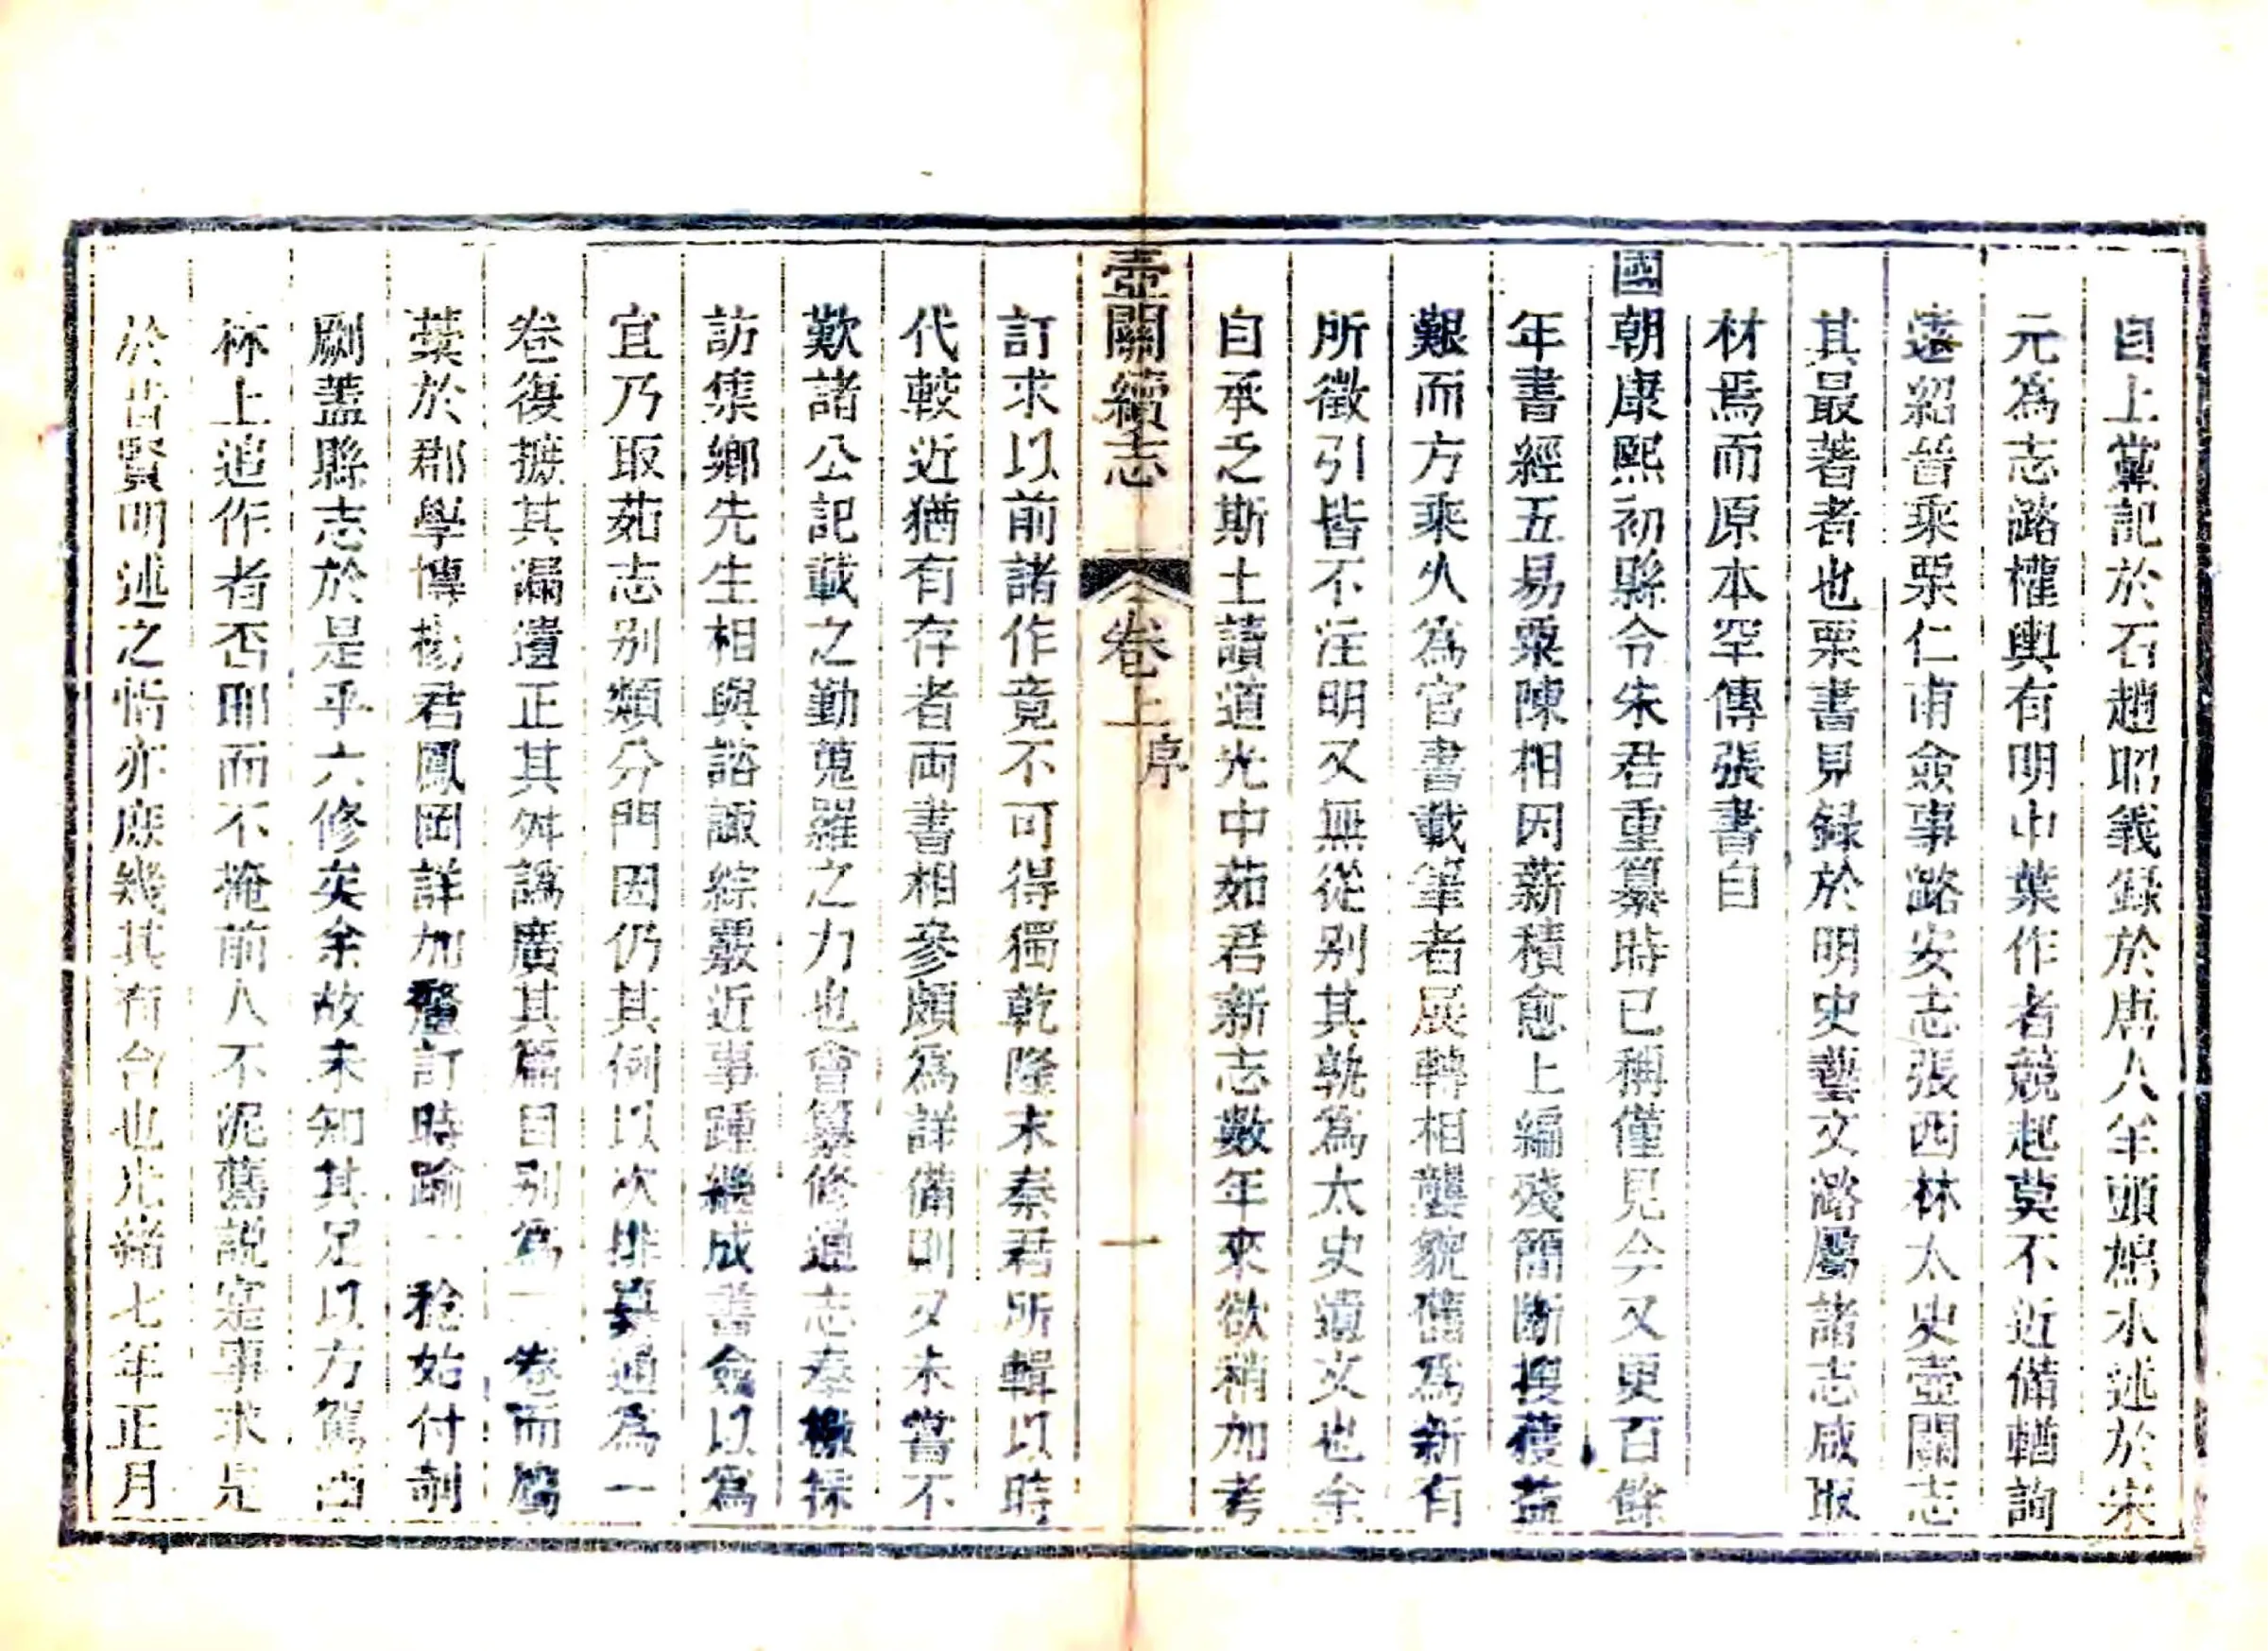 自上黨記於石趙昭義錄於唐人羊頭㯭水述於宋
元為志潞權輿有明中葉作者競起莫不近備輶詢
遠紹晉乘栗仁甫僉事潞安志張西林太史壺關志
其最著者也栗書見録於明史藝文潞屬諸志咸取
材焉而原本罕傳張書自
國朝康熙初縣令朱君重纂時已稱僅見今又更百餘
年書經五易粟陳相因薪積愈上編殘簡斷搜獲益
艱而方乘火為官書載筆者展轉相襲貌舊為新有
所徵引皆不注明又無從别其孰為太史遺文也余
自承乏斯土讀道光中茹君新志數年來欲稍加考
壺關續志
卷上
序
一
訂求以前諸作竟不可得獨乾隆末秦君所輯以時
代較近猶有存者兩書相參頗為詳備則又未嘗不
歎諸公記載之勤蒐羅之力也會纂修通志奉檄採
訪集鄉先生相與諮諏綜覈近事踵繼成書僉以為
宜乃取茹志别類分門因仍其例以次排纂通為一
卷復摭其漏遺正其舛譌廣其篇目别為一卷而屬
藁於郡學博楊君鳳岡詳加釐訂時踰一稔始付剞
劂蓋縣志於是乎六修矣余故未知其足以方駕西
林上追作者否耶而不掩前人不泥舊說寔事求是
於昔賢明述之恉亦庶幾其有合也光緒七年正月